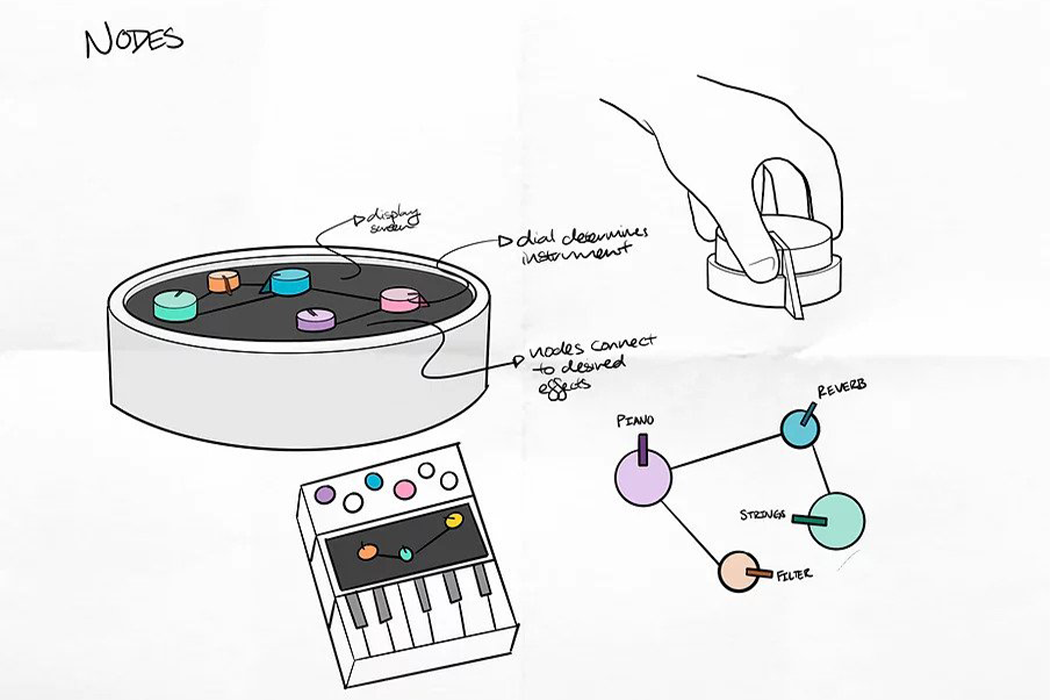 NODES
display
screen
dial determines
instrument
nodes connect
to desired
effects
REVERB
PIANO
STRINGS
FILTER